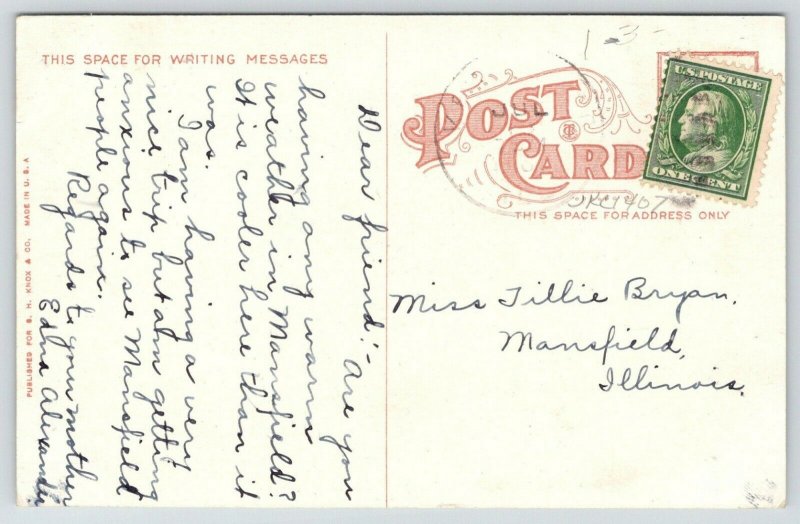 THIS SPACE FOR WRITING MESSAGES
Dear friend:- Are you
having any warm
weather in Mansfield?
It is cooler here than it
was.
I am having a very
nice trip but am getting
anxious to see Mansfield
people again.
Regards to your mother
Edna Alexander
PUBLISHED FOR S. H. KNOX & CO. MADE IN U. S. A
1-3-
POST
CARD
JUL
U.S. POSTAGE
ONE CENT
THIS SPACE FOR ADDRESS ONLY
Miss Tillie Bryan.
Mansfield,
Illinois.